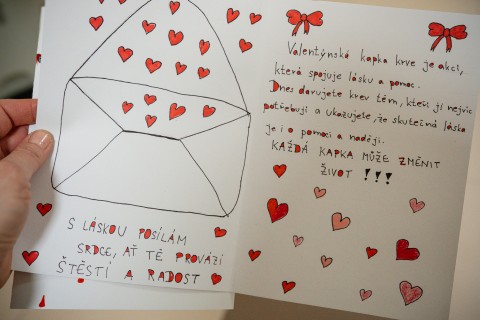 S LÁSKOU POSÍLÁM
SRDCE, AŤ TĚ PROVÁZÍ
ŠTĚSTÍ A RADOST
Valentýnská kapka krve je akcí,
která spojuje lásku a pomoc.
Dnes darujete krev těm, kteří ji nejvíc
potřebují a ukazujete, že skutečná láska
je i o pomoci a naději.
KAŽDÁ KAPKA MŮŽE ZMĚNIT
ŽIVOT !!!